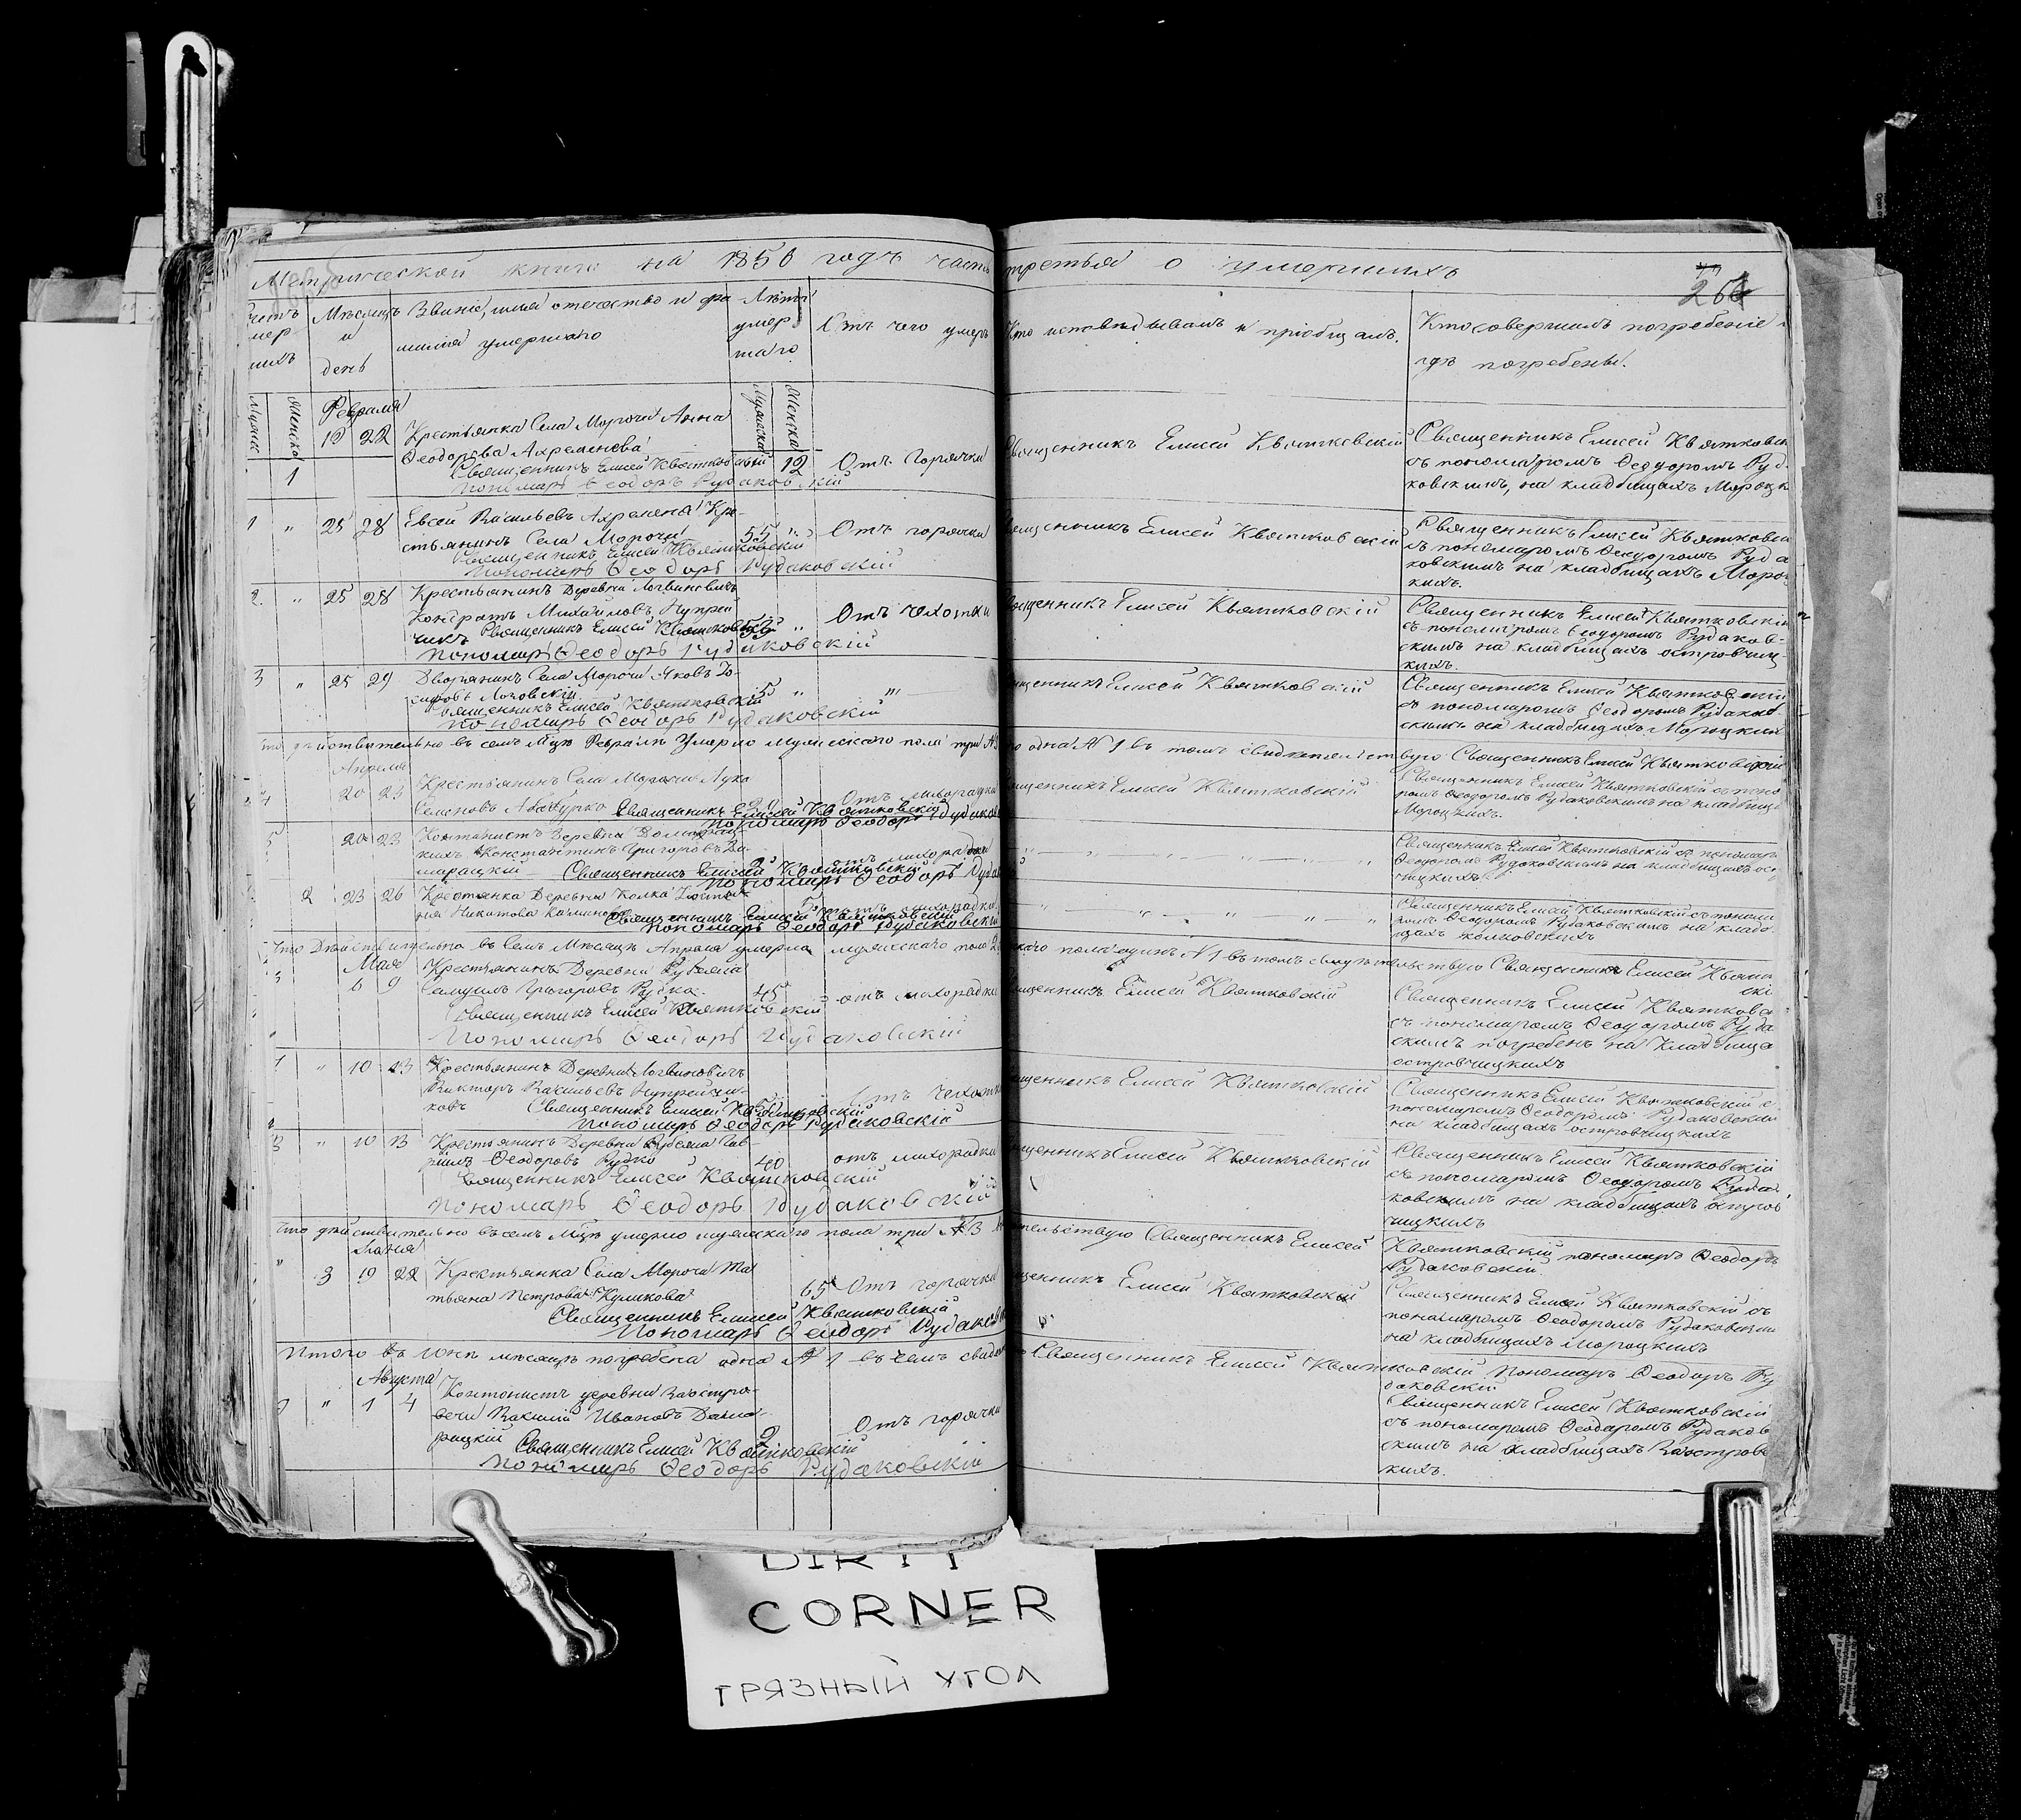 Метрической книги на 1856 годъ часть третья о умершихъ
266
Мѣсяцъ и день
Званіе, имя отчество и фамилія умершаго
Лѣта умершаго
Отъ чего умеръ
Кто исповѣдывалъ и пріобщалъ.
Кто совершилъ погребеніе и гдѣ погребены.
Мужеск
Женска
Февраля
1 19 22 Крестьянка Села Морочи Анна
Ѳеодорова Ахременова 12 Отъ Горячки
Священникъ Елисей Квятковскій
Пономарь Ѳеодоръ Рудаковскій
Священникъ Елисей Квятковскій
Священникъ Елисей Квятковск
съ пономаромъ Ѳеодоромъ Руда
ковскимъ, на кладбищахъ Мороцк
1 " 25 28 Евсей Васильевъ Ахремена Кре-
стьянинъ Села Морочи 55 " Отъ горячки
Священникъ Елисей Квятковскій
Пономарь Ѳеодоръ Рудаковскій
Священникъ Елисей Квятковскій
Священникъ Елисей Квятковск
съ пономаромъ Ѳеодоромъ Руда
ковскимъ на кладбищахъ Мороц
кихъ.
2 " 25 28 Крестьянинъ Деревни
Кондратъ Михайловъ Купрей
чикъ " Отъ чахотки
Священникъ Елисей Квятковскій
Пономарь Ѳеодоръ Рудаковскій
Священникъ Елисей Квятковскій
Священникъ Елисей Квятковскій
съ пономаромъ Ѳеодоромъ Рудаков-
скимъ на кладбищахъ островчиц-
кихъ.
3 " 25 29 Дворянинъ Села Морочи Яковъ Іо-
сифовъ 5 " "
Священникъ Елисей Квятковскій
Пономарь Ѳеодоръ Рудаковскій
Священникъ Елисей Квятковскій
Священникъ Елисей Квятковскій
съ пономаромъ Ѳеодоромъ Рудаков
скимъ на кладбищахъ Мороцких
что дѣйствительно въ семъ Мцѣ Февралѣ Умерло мужескаго пола три №3 одна №1 въ томъ свидѣтельствую Священникъ Елисей Квятковскій
Апрѣля
4 20 23 Крестьянинъ Села Морочи Лука
Семеновъ Отъ лихорадки
Священникъ Елисей Квятковскій
Пономарь Ѳеодоръ Рудаков
Священникъ Елисей Квятковскій
Священникъ Елисей Квятковскій съ поно
ромъ Ѳеодоромъ Рудаковскимъ на кладбищ
Мороцкихъ.
5 20 23 Кантонистъ Деревни
Константинъ Григоровъ Да-
марацкій отъ лихорадки
Священникъ Елисей Квятковскій
Пономарь Ѳеодоръ Рудак
Священникъ Елисей Квятковскій съ пономар
Ѳеодоромъ Рудаковскимъ на кладбищахъ
2 23 26 Крестянка Деревни Колка
Никитова отъ лихорадки
Священникъ Елисей Квятковскій
Пономарь Ѳеодоръ Рудаковскій
Священникъ Елисей Квятковскій съ понома
ромъ Ѳеодоромъ Рудаковскимъ на кладби-
щахъ колковскихъ
Что Дѣйствительно въ Семъ Мѣсяцѣ Апрѣлѣ умерло мужескаго пола 2 пола одинъ №1 въ томъ свидѣтельствую Священникъ Елисей Квятк
Мая
6 9 Крестьянинъ Деревни
Самуилъ Григоровъ Рудко 45 отъ лихорадки
Священникъ Елисей Квятковскій
Пономарь Ѳеодоръ Рудаковскій
Священникъ Елисей Квятковскій
Священникъ Елисей Квятковс
съ пономаромъ Ѳеодоромъ Руда
скимъ погребенъ на Кладбища
островчицкихъ
" 10 13 Крестьянинъ Деревни
Викторъ Васильевъ Купрейчи-
ковъ Отъ чахотк
Священникъ Елисей Квятковскій
Пономарь Ѳеодоръ Рудаковскій
Священникъ Елисей Квятковскій
Священникъ Елисей Квятковскій с
пономаремъ Ѳеодоромъ Рудаковским
на кладбищахъ островчицкихъ
3 " 10 13 Крестьянинъ Деревни Гав-
рилъ Ѳеодоровъ Рудко 40 отъ лихорадки
Священникъ Елисей Квятковскій
Пономарь Ѳеодоръ Рудаковскій
Священникъ Елисей Квятковскій
Священникъ Елисей Квятковскій
съ пономаромъ Ѳеодоромъ Руда
ковскимъ на кладбищахъ остров
чицкихъ
что дѣйствительно въ семъ Мцѣ умерло мужскаго пола три №3 Священникъ Елисей Квятковскій пономарь Ѳеодоръ
Рудаковскій
Іюня
" 3 19 22 Крестьянка Села Морочи Та
тьяна Петрова Куликова 65 Отъ горячки
Священникъ Елисей Квятковскій
Пономарь Ѳеодоръ Рудаков
Священникъ Елисей Квятковскій
Священникъ Елисей Квятковскій съ
пономаромъ Ѳеодоромъ Рудаковским
на кладбищахъ мороцкихъ
Итого въ Іюнѣ мѣсяцѣ погребена одна № 1 въ чемъ свидѣ Священникъ Елисей Квятковскій Пономарь Ѳеодоръ Ру
даковскій
Августа
" 1 4 Кантонистъ деревни Заостро-
вечи Василій Ивановъ Дама-
рацкій 2 Отъ горячки
Священникъ Елисей Квятковскій
Пономарь Ѳеодоръ Рудаковскій
Священникъ Елисей Квятковскій
съ пономаромъ Ѳеодоромъ Рудаков
скимъ на кладбищахъ Заостров
кихъ.
DIRTY
CORNER
ГРЯЗНЫЙ УГОЛ